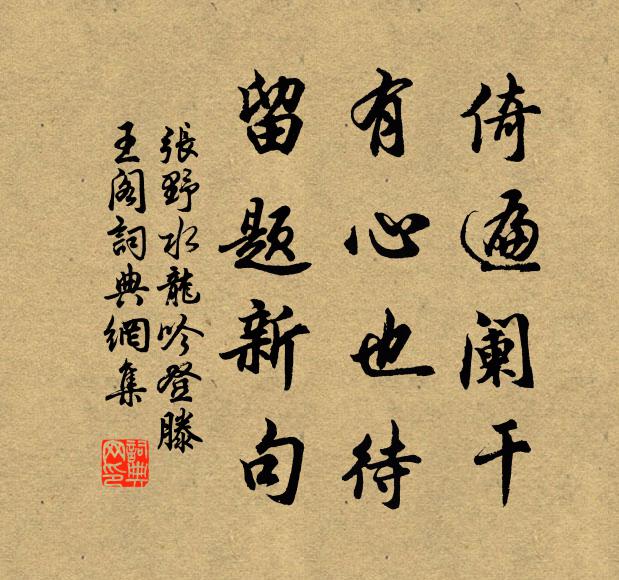 倚遍阑干
有心也待
留题新句
張野水龍吟登滕
王阁詞典網集
詞典
网印